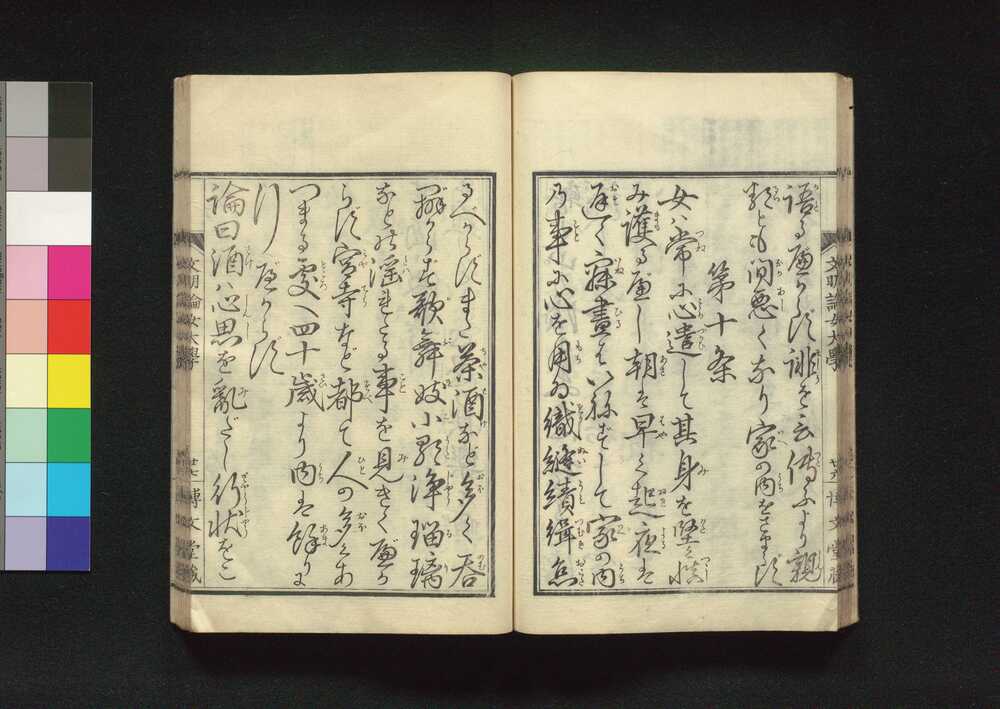 語るべからず誹を云傳ふより親
類とも間悪くなり家の内をさまらず
第十条
女ハ常に心遣して其身を堅く慎
み護るべし朝は早く起夜は
遅く寐晝はいねずして家の内
の事に心を用ゐ織縫績緝怠
るべからずまた茶酒など多く呑
べからず歌舞妓小歌浄瑠璃
などの淫れたる事を見きくべか
らず宮寺など都て人の多くあ
つまる処へ四十歳より内は餘りに
行べからず
論曰酒ハ心思を亂だし行状をこ
文明論女大學
博文堂藏
文明論女大學
博文堂藏